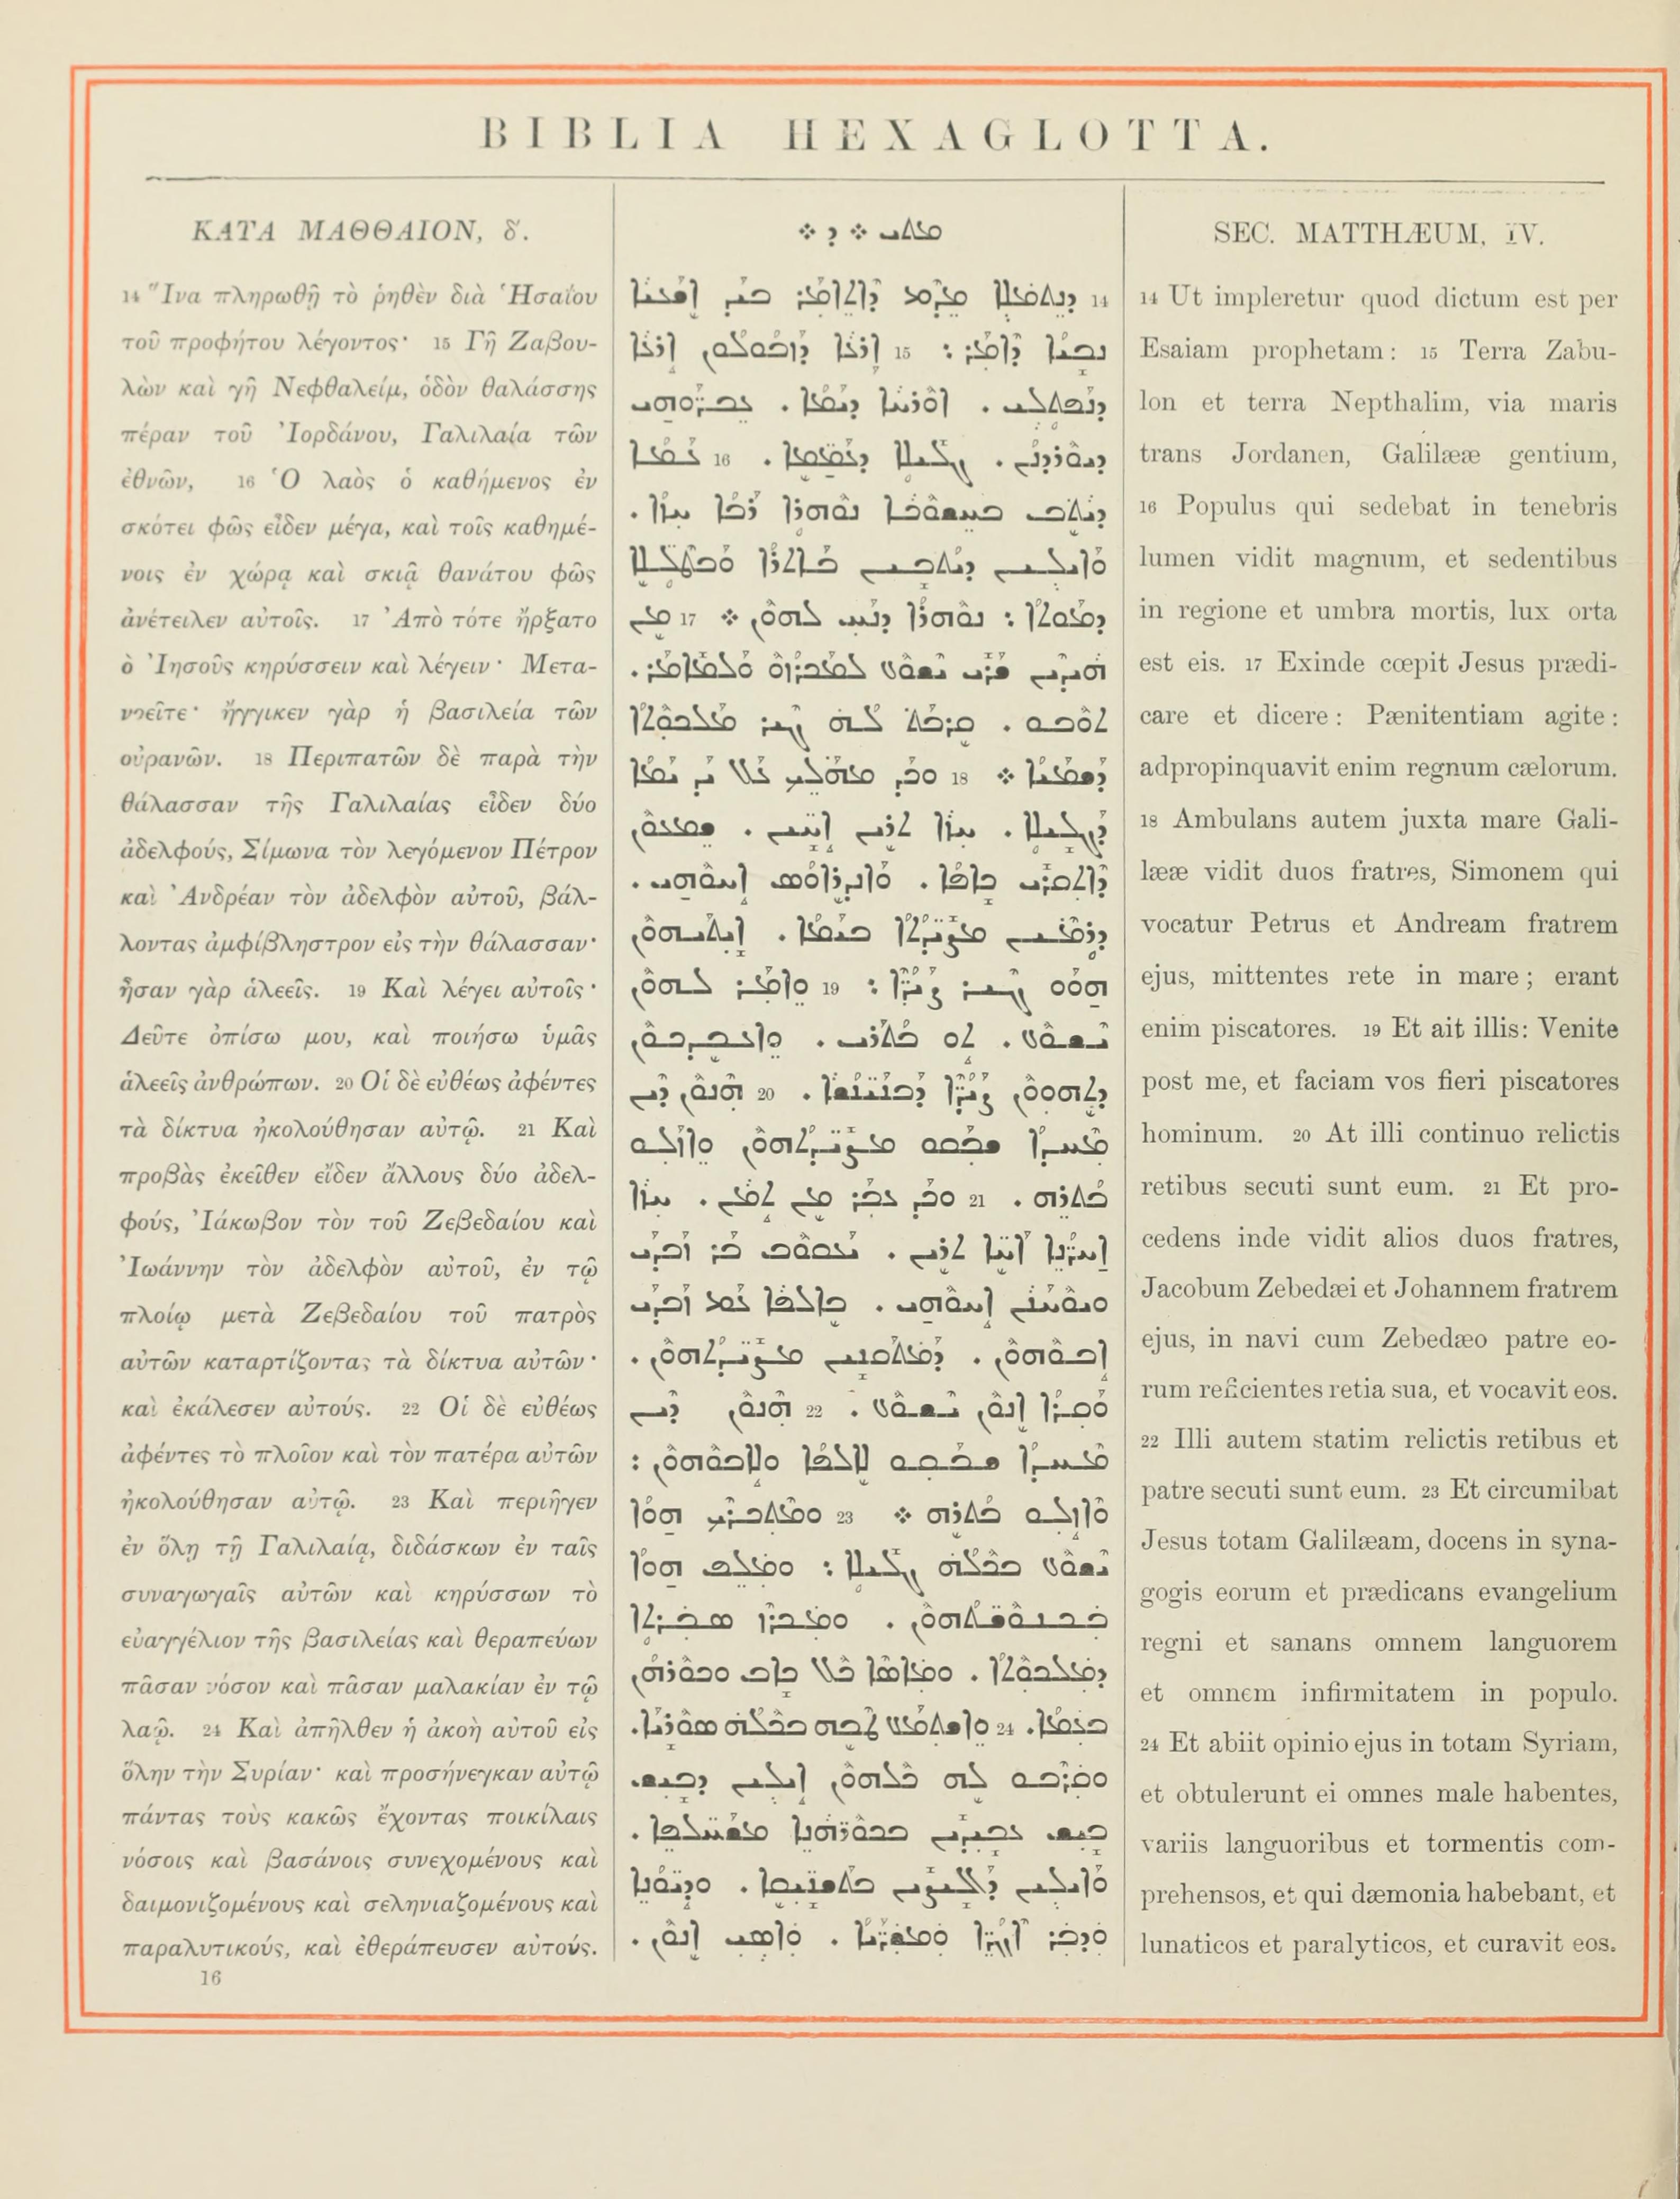 BIBLIA HEXAGLOTTA.
ΚΑΤΑ ΜΑΘΘΑΙΟΝ, δ΄.
14 Ἵνα πληρωθῇ τὸ ῥηθὲν διὰ Ἡσαΐου
τοῦ προφήτου λέγοντος· 15 Γῆ Ζαβου-
λὼν καὶ γῆ Νεφθαλείμ, ὁδὸν θαλάσσης
πέραν τοῦ Ἰορδάνου, Γαλιλαία τῶν
ἐθνῶν, 16 Ὁ λαὸς ὁ καθήμενος ἐν
σκότει φῶς εἶδεν μέγα, καὶ τοῖς καθημέ-
νοις ἐν χώρᾳ καὶ σκιᾷ θανάτου φῶς
ἀνέτειλεν αὐτοῖς. 17 Ἀπὸ τότε ἤρξατο
ὁ Ἰησοῦς κηρύσσειν καὶ λέγειν· Μετα-
νοεῖτε· ἤγγικεν γὰρ ἡ βασιλεία τῶν
οὐρανῶν. 18 Περιπατῶν δὲ παρὰ τὴν
θάλασσαν τῆς Γαλιλαίας εἶδεν δύο
ἀδελφούς, Σίμωνα τὸν λεγόμενον Πέτρον
καὶ Ἀνδρέαν τὸν ἀδελφὸν αὐτοῦ, βάλ-
λοντας ἀμφίβληστρον εἰς τὴν θάλασσαν·
ἦσαν γὰρ ἁλεεῖς. 19 Καὶ λέγει αὐτοῖς·
Δεῦτε ὀπίσω μου, καὶ ποιήσω ὑμᾶς
ἁλεεῖς ἀνθρώπων. 20 Οἱ δὲ εὐθέως ἀφέντες
τὰ δίκτυα ἠκολούθησαν αὐτῷ. 21 Καὶ
προβὰς ἐκεῖθεν εἶδεν ἄλλους δύο ἀδελ-
φούς, Ἰάκωβον τὸν τοῦ Ζεβεδαίου καὶ
Ἰωάννην τὸν ἀδελφὸν αὐτοῦ, ἐν τῷ
πλοίῳ μετὰ Ζεβεδαίου τοῦ πατρὸς
αὐτῶν καταρτίζοντας τὰ δίκτυα αὐτῶν·
καὶ ἐκάλεσεν αὐτούς. 22 Οἱ δὲ εὐθέως
ἀφέντες τὸ πλοῖον καὶ τὸν πατέρα αὐτῶν
ἠκολούθησαν αὐτῷ. 23 Καὶ περιῆγεν
ἐν ὅλῃ τῇ Γαλιλαίᾳ, διδάσκων ἐν ταῖς
συναγωγαῖς αὐτῶν καὶ κηρύσσων τὸ
εὐαγγέλιον τῆς βασιλείας καὶ θεραπεύων
πᾶσαν νόσον καὶ πᾶσαν μαλακίαν ἐν τῷ
λαῷ. 24 Καὶ ἀπῆλθεν ἡ ἀκοὴ αὐτοῦ εἰς
ὅλην τὴν Συρίαν· καὶ προσήνεγκαν αὐτῷ
πάντας τοὺς κακῶς ἔχοντας ποικίλαις
νόσοις καὶ βασάνοις συνεχομένους καὶ
δαιμονιζομένους καὶ σεληνιαζομένους καὶ
παραλυτικούς, καὶ ἐθεράπευσεν αὐτούς.
16
ܡܬܝ ܀ ܕ ܀
14 ܕܢܬܡܠܐ ܡܕܡ ܕܐܬܐܡܪ ܒܝܕ ܐܫܥܝܐ
ܢܒܝܐ ܕܐܡܪ : 15 ܐܪܥܐ ܕܙܒܘܠܘܢ ܐܪܥܐ
ܕܢܦܬܠܝ . ܐܘܪܚܐ ܕܝܡܐ . ܥܒܪܘܗܝ
ܕܝܘܪܕܢܢ . ܓܠܝܠܐ ܕܥܡܡܐ . 16 ܥܡܐ
ܕܝܬܒ ܒܚܫܘܟܐ ܢܘܗܪܐ ܪܒܐ ܚܙܐ .
ܘܐܝܠܝܢ ܕܝܬܒܝܢ ܒܐܬܪܐ ܘܒܛܠܠܐ
ܕܡܘܬܐ : ܢܘܗܪܐ ܕܢܚ ܠܗܘܢ ܀ 17 ܡܢ
ܗܝܕܝܢ ܫܪܝ ܝܫܘܥ ܠܡܟܪܙܘ ܘܠܡܐܡܪ .
ܬܘܒܘ . ܩܪܒܬ ܠܗ ܓܝܪ ܡܠܟܘܬܐ
ܕܫܡܝܐ ܀ 18 ܘܟܕ ܡܗܠܟ ܥܠ ܝܕ ܝܡܐ
ܕܓܠܝܠܐ . ܚܙܐ ܬܪܝܢ ܐܚܝܢ . ܫܡܥܘܢ
ܕܐܬܩܪܝ ܟܐܦܐ . ܘܐܢܕܪܐܘܣ ܐܚܘܗܝ .
ܕܪܡܝܢ ܡܨܝܕܬܐ ܒܝܡܐ . ܐܝܬܝܗܘܢ
ܗܘܘ ܓܝܪ ܨܝܕܐ : 19 ܘܐܡܪ ܠܗܘܢ
ܝܫܘܥ . ܬܘ ܒܬܪܝ . ܘܐܥܒܕܟܘܢ
ܕܬܗܘܘܢ ܨܝܕܐ ܕܒܢܝܢܫܐ . 20 ܗܢܘܢ ܕܝܢ
ܡܚܕܐ ܫܒܩܘ ܡܨܝܕܬܗܘܢ ܘܐܙܠܘ
ܒܬܪܗ . 21 ܘܟܕ ܥܒܪ ܡܢ ܬܡܢ . ܚܙܐ
ܐܚܪܢܐ ܐܚܐ ܬܪܝܢ . ܝܥܩܘܒ ܒܪ ܙܒܕܝ
ܘܝܘܚܢܢ ܐܚܘܗܝ . ܒܐܠܦܐ ܥܡ ܙܒܕܝ
ܐܒܘܗܘܢ . ܕܡܬܩܢܝܢ ܡܨܝܕܬܗܘܢ .
ܘܩܪܐ ܐܢܘܢ ܝܫܘܥ . 22 ܗܢܘܢ ܕܝܢ
ܡܚܕܐ ܫܒܩܘ ܠܐܠܦܐ ܘܠܐܒܘܗܘܢ :
ܘܐܙܠܘ ܒܬܪܗ ܀ 23 ܘܡܬܟܪܟ ܗܘܐ
ܝܫܘܥ ܒܟܠܗ ܓܠܝܠܐ : ܘܡܠܦ ܗܘܐ
ܒܟܢܘܫܬܗܘܢ . ܘܡܟܪܙ ܣܒܪܬܐ
ܕܡܠܟܘܬܐ . ܘܡܐܣܐ ܟܠ ܟܐܒ ܘܟܘܪܗܢ
ܒܥܡܐ . 24 ܘܐܫܬܡܥ ܛܒܗ ܒܟܠܗ ܣܘܪܝܐ .
ܘܩܪܒܘ ܠܗ ܟܠܗܘܢ ܐܝܠܝܢ ܕܒܝܫ
ܒܝܫ ܥܒܝܕܝܢ ܒܟܘܪܗܢܐ ܡܫܚܠܦܐ .
ܘܐܝܠܝܢ ܕܐܠܝܨܝܢ ܒܬܫܢܝܩܐ . ܘܕܝܘܢܐ
ܘܕܒܪ ܐܓܪܐ ܘܡܫܪܝܐ . ܘܐܣܝ ܐܢܘܢ .
SEC. MATTHÆUM, IV.
14 Ut impleretur quod dictum est per
Esaiam prophetam: 15 Terra Zabu-
lon et terra Nepthalim, via maris
trans Jordanen, Galilææ gentium,
16 Populus qui sedebat in tenebris
lumen vidit magnum, et sedentibus
in regione et umbra mortis, lux orta
est eis. 17 Exinde cœpit Jesus prædi-
care et dicere: Pænitentiam agite:
adpropinquavit enim regnum cælorum.
18 Ambulans autem juxta mare Gali-
lææ vidit duos fratres, Simonem qui
vocatur Petrus et Andream fratrem
ejus, mittentes rete in mare; erant
enim piscatores. 19 Et ait illis: Venite
post me, et faciam vos fieri piscatores
hominum. 20 At illi continuo relictis
retibus secuti sunt eum. 21 Et pro-
cedens inde vidit alios duos fratres,
Jacobum Zebedæi et Johannem fratrem
ejus, in navi cum Zebedæo patre eo-
rum reficientes retia sua, et vocavit eos.
22 Illi autem statim relictis retibus et
patre secuti sunt eum. 23 Et circumibat
Jesus totam Galilæam, docens in syna-
gogis eorum et prædicans evangelium
regni et sanans omnem languorem
et omnem infirmitatem in populo.
24 Et abiit opinio ejus in totam Syriam,
et obtulerunt ei omnes male habentes,
variis languoribus et tormentis com-
prehensos, et qui dæmonia habebant, et
lunaticos et paralyticos, et curavit eos.